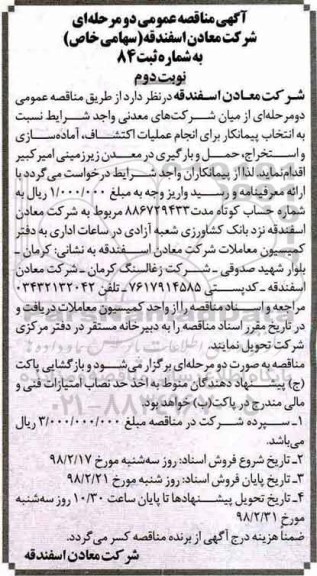 آگهی مناقصه عمومی دو مرحله‌ای
شرکت معادن اسفندقه (سهامی خاص)
به شماره ثبت ۸۴
نوبت دوم
شرکت معادن اسفندقه درنظر دارد از طریق مناقصه عمومی
دومرحله‌ای از میان شرکت‌های معدنی واجد شرایط نسبت
به انتخاب پیمانکار برای انجام عملیات اکتشاف، آماده‌سازی
و استخراج، حمل و بارگیری در معدن زیرزمینی امیرکبیر
اقدام‌نماید. لذا از پیمانکاران واجد شرایط درخواست می‌گردد با
ارائه معرفینامه و رسید واریز وجه به مبلغ ۱/۰۰۰/۰۰۰ ریال به
شماره حساب کوتاه مدت ۸۸۶۷۲۹۴۳۳ مربوط به شرکت معادن
اسفندقه نزد بانک کشاورزی شعبه آزادی در ساعات اداری به دفتر
کمیسیون معاملات شرکت معادن اسفندقه به نشانی: کرمان ـ
بلوار شهید صدوقی ـ شرکت زغالسنگ کرمان ـ شرکت معادن
اسفندقه ـ کدپستی ۷۶۱۷۹۱۴۵۸۵ ـ تلفن ۰۳۴۳۲۱۳۲۰۴۲
مراجعه و اسناد مناقصه را از واحد کمیسیون معاملات دریافت و
در تاریخ مقرر اسناد مناقصه را به دبیرخانه مستقر در دفتر مرکزی
شرکت تحویل نمایند.
مناقصه به صورت دو مرحله‌ای برگزار می‌شود و بازگشایی پاکت
(ج) پیشنهاد دهندگان منوط به اخذ حد نصاب امتیازات فنی و
مالی مندرج در پاکت(ب) خواهد بود.
۱ـ سپرده شرکت در مناقصه مبلغ ۳/۰۰۰/۰۰۰/۰۰۰ ریال
می‌باشد.
۲ـ تاریخ شروع فروش اسناد: روز سه‌شنبه مورخ ۹۸/۲/۱۷
۳ـ تاریخ پایان فروش اسناد: روز شنبه مورخ ۹۸/۲/۲۱
۴ـ تاریخ تحویل پیشنهادها تا پایان ساعت ۱۰/۳۰ روز سه‌شنبه
مورخ ۹۸/۲/۳۱
ضمناً هزینه درج آگهی از برنده مناقصه کسر می‌گردد.
شرکت معادن اسفندقه